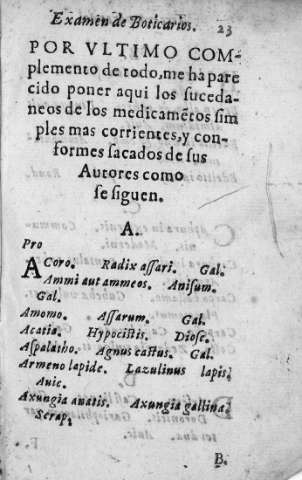 Examen de Boticarios. 23
POR VLTIMO COM-
plemento de todo, me ha pare
cido poner aqui los suceda-
neos de los medicamẽtos sim
ples mas corrientes, y con-
formes sacados de sus
Autores como
se siguen.
A.
Pro
ACoro. Radix assari. Gal.
Ammi aut ammeos. Anisum.
Gal.
Amomo. Assarum. Gal.
Acatia. Hypocistis. Diosc.
Aspalatho. Agnus castus. Gal.
Armeno lapide. Lazulinus lapis.
Auic.
Axungia anatis. Axungia gallina.
Serap.
B.